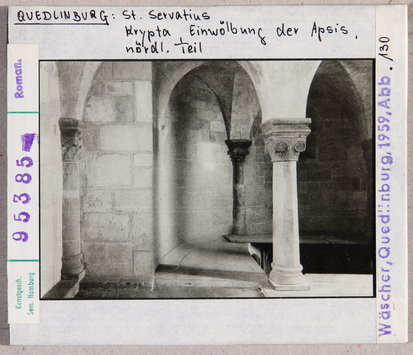 QUEDLINBURG: St. Servatius
Krypta, Einwölbung der Apsis,
nördl. Teil
Roman.
95385
Kunstgesch.
Sem. Hamburg
Wäscher, Quedlinburg, 1959, Abb. 130